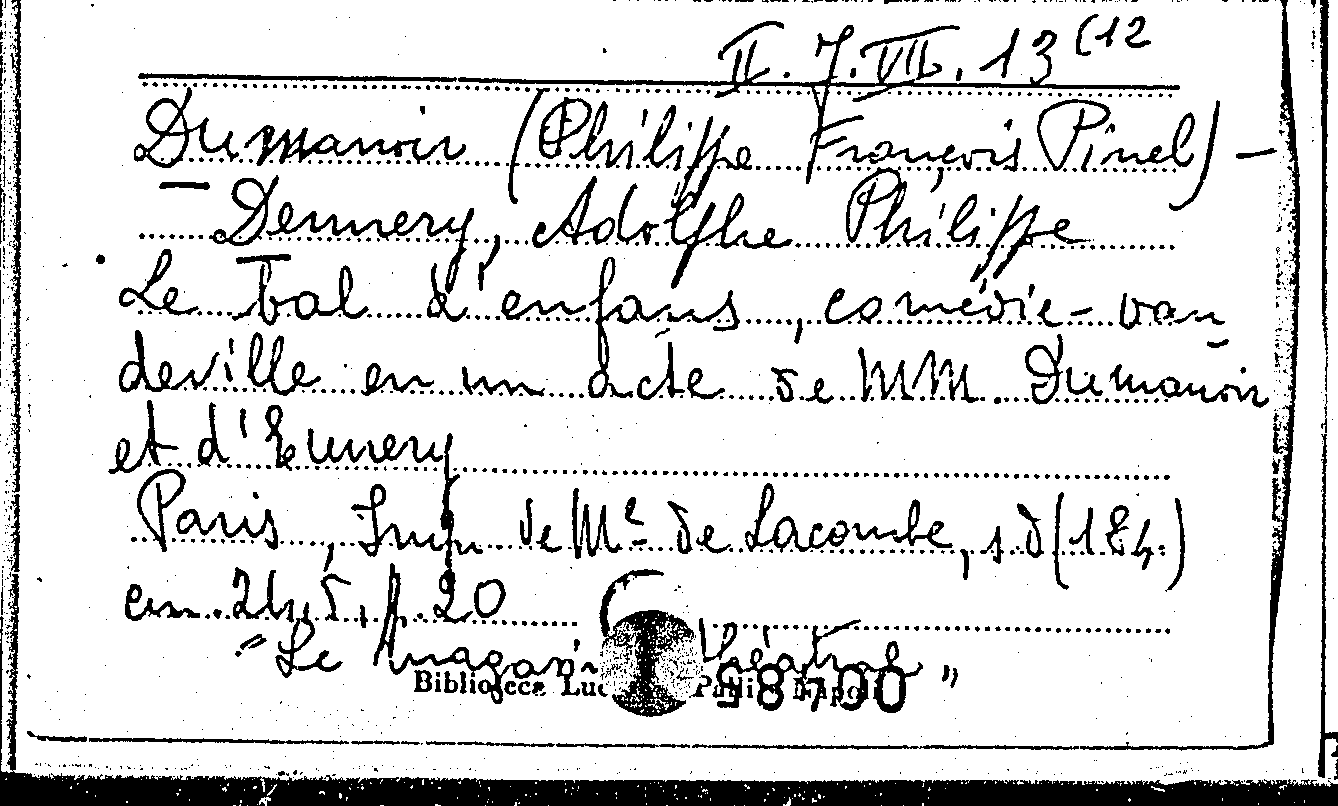 II. 7. VII. 13 (12
Dumanoir (Philippe François Pinel) —
Dennery, Adolphe Philippe
Le bal d'enfans, comédie-vau
deville en un acte de MM. Dumanoir
et d'Ennery
Paris, Imp. de Me de Lacombe, s.d (184.)
cm. 24,5, p. 20
"Le Magasin théâtral"
Biblioteca Luc